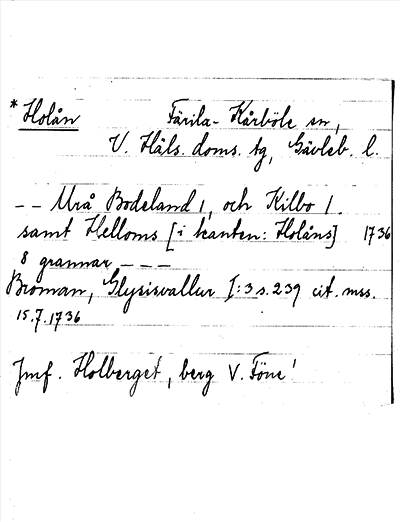 * Holån Färila-Kårböle sn,
V. Häls. doms. tg, Gävleb. l.
-- Mrå Bodeland 1, och Kilbo 1.
samt Helloms [i kanten: Holåns] 1736
8 grannar ---
Broman, Glysisvallur I:3 s. 239 cit. mss.
15.7.1736
Jmf. Holberget, berg V. Föne